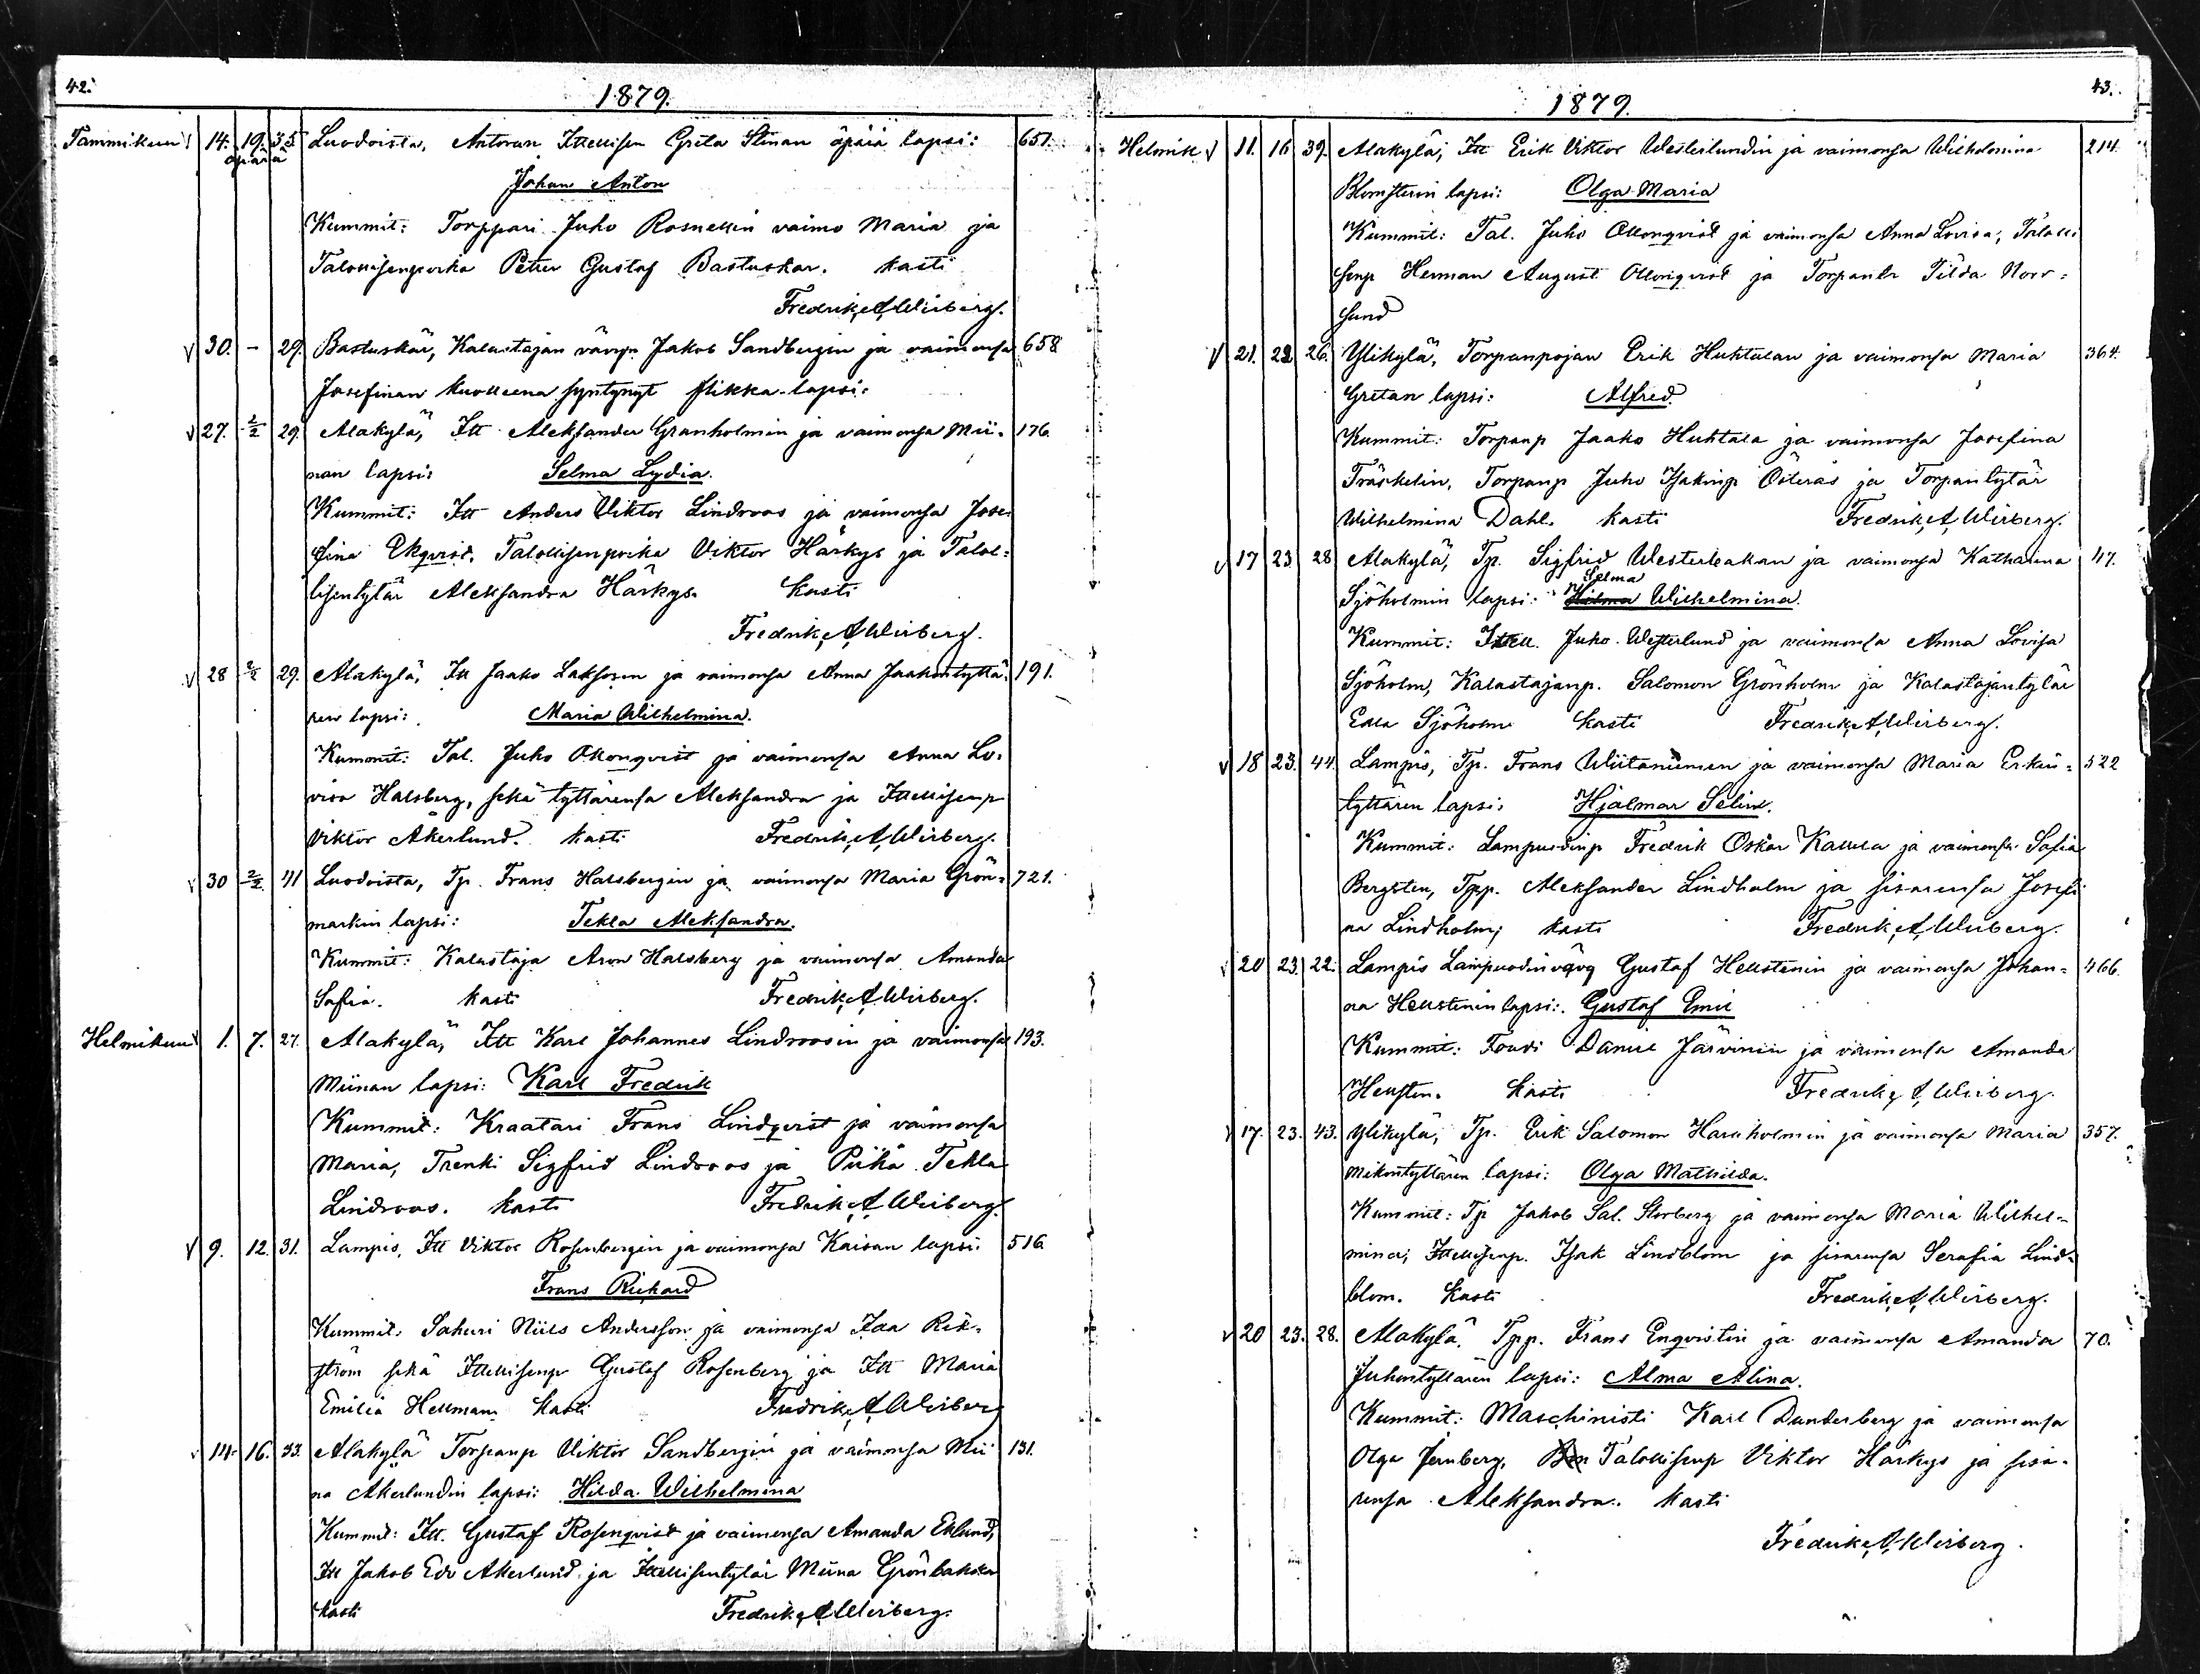 42.
1879.
Tammikuu 14. 19. 35 Luodoista, Antovan Ittellisen Greta Stinan äpärä lapsi: 651.
äpärä
Johan Anton
Kummit: Torppari Juho Rosnellin vaimo Maria ja
Talollisenpoika Petter Gustaf Bastuskär. kasti
Fredrik A Weiberg.
V 30. – 29. Bastuskär, Kalastajan vävyn Jakob Sandbergin ja vaimonsa 658
Josefinan kuolleena syntynyt flikka-lapsi.
V 27. 2/2 29. Alakylä, Itt Aleksander Granholmin ja vaimonsa Mii- 176.
nan lapsi: Selma Lydia.
Kummit: Itt Anders Viktor Lindroos ja vaimonsa Jose-
fina Ekqvist, Talollisenpoika Viktor Härkys ja Talol-
lisentytär Aleksandra Härkys. kasti
Fredrik A Weiberg.
V 28 2/2 29. Alakylä, Itt Jaako Laksosen ja vaimonsa Anna Jaakontyttä- 191.
ren lapsi: Maria Wilhelmina.
Kummit: Tal. Juho Ollonqvist ja vaimonsa Anna Lo-
visa Halsberg, sekä tyttärensä Aleksandra ja Ittellisenp
Viktor Åkerlund. kasti Fredrik A Weiberg.
V 30 2/2 41 Luodoista, Tp. Frans Halsbergin ja vaimonsa Maria Grön- 721.
markin lapsi: Tekla Aleksandra.
Kummit: Kalastaja Aron Halsberg ja vaimonsa Amanda
Safia. kasti Fredrik A Weiberg.
Helmikuu 1. 7. 27. Alakylä, Itt Karl Johannes Lindroosin ja vaimonsa 193.
Miinan lapsi: Karl Fredrik
Kummit: Kraatari Frans Lindqvist ja vaimonsa
Maria, Trenki Sigfrid Lindroos ja Piika Tekla
Lindroos. kasti Fredrik A Weiberg.
V 9. 12. 31. Lampis, Itt Viktor Rosenbergin ja vaimonsa Kaisan lapsi: 516.
Frans Rickard
Kummit. Sahuri Niils Andersson ja vaimonsa Ida Rik-
ström sekä Ittellisenp Gustaf Rosenberg ja Itt Maria
Emilia Hellman kasti Fredrik A Weiberg
14. 16. 33. Alakylä Torpanp Viktor Sandbergin ja vaimonsa Mii 131.
na Åkerlundin lapsi: Hilda Wilhelmina
Kummit: Itt. Gustaf Rosenqvist ja vaimonsa Amanda Eklund,
Itt Jakob Edv Åkerlund ja Ittellisentytär Miina Grönbakka
kasti Fredrik A Weiberg.
43.
1879.
Helmik V 11. 16 39. Alakylä, Itt Erik Viktor Westerlundin ja vaimonsa Wilhelmina 214.
Blomsterin lapsi: Olga Maria
Kummit: Tal. Juho Ollonqvist ja vaimonsa Anna Lovisa, Talolli
senp Herman August Ollonqvist ja Torpantr Tilda Norr-
sund
V 21. 22 26. Ylikylä, Torpanpojan Erik Huhtalan ja vaimonsa Maria 364.
Gretan lapsi: Alfred.
Kummit: Torpanp Jaako Huhtala ja vaimonsa Josefina
Träskelin, Torpanp Juho Isakinp Österås ja Torpantytär
Wilhelmina Dahl. kasti Fredrik A Weiberg.
V 17 23 28 Alakylä, Tp. Sigfrid Westerbakan ja vaimonsa Katharina 47.
Selma
Sjöholmin lapsi: Hilma Wilhelmina.
Kummit: Ittell. Juho Westerlund ja vaimonsa Anna Lovisa
Sjöholm, Kalastajanp. Salomon Grönholm ja Kalastajantytär
Edla Sjöholm kasti Fredrik A Weiberg.
V 18 23. 44. Lampis, Tp. Frans Wiitaniemen ja vaimonsa Maria Erkin- 522
tyttären lapsi: Hjalmar Selim.
Kummit: Lampuodinp Fredrik Oskar Kallela ja vaimonsa Safia
Bergsten, Tpp. Aleksander Lindholm ja sisarensa Josefi
na Lindholm; kasti Fredrik A Weiberg.
V 20 23. 22. Lampis Lampuodinvävy Gustaf Hellstenin ja vaimonsa Johan- 466.
na Hellstenin lapsi: Gustaf Emil
Kummit: Foudi Daniel Järvinen ja vaimonsa Amanda
Hellsten. kasti Fredrik A Weiberg.
V 17. 23. 43. Ylikylä, Tp. Erik Salomon Haraholmin ja vaimonsa Maria 357.
Mikontyttären lapsi: Olga Mathilda.
Kummit: Tp Jakob Sal. Storberg ja vaimonsa Maria Wilhel-
mina; Ittellisenp. Isak Lindblom ja sisarensa Serafia Lind-
blom. kasti Fredrik A Weiberg.
V 20 23. 28. Alakylä. Tpp. Frans Enqvistin ja vaimonsa Amanda 70.
Juhontyttären lapsi: Alma Alina.
Kummit: Maschinisti Karl Dunderberg ja vaimonsa
Olga Jernberg, Talollisenp Viktor Härkys ja sisa-
rensa Aleksandra. kasti
Fredrik A Weiberg.